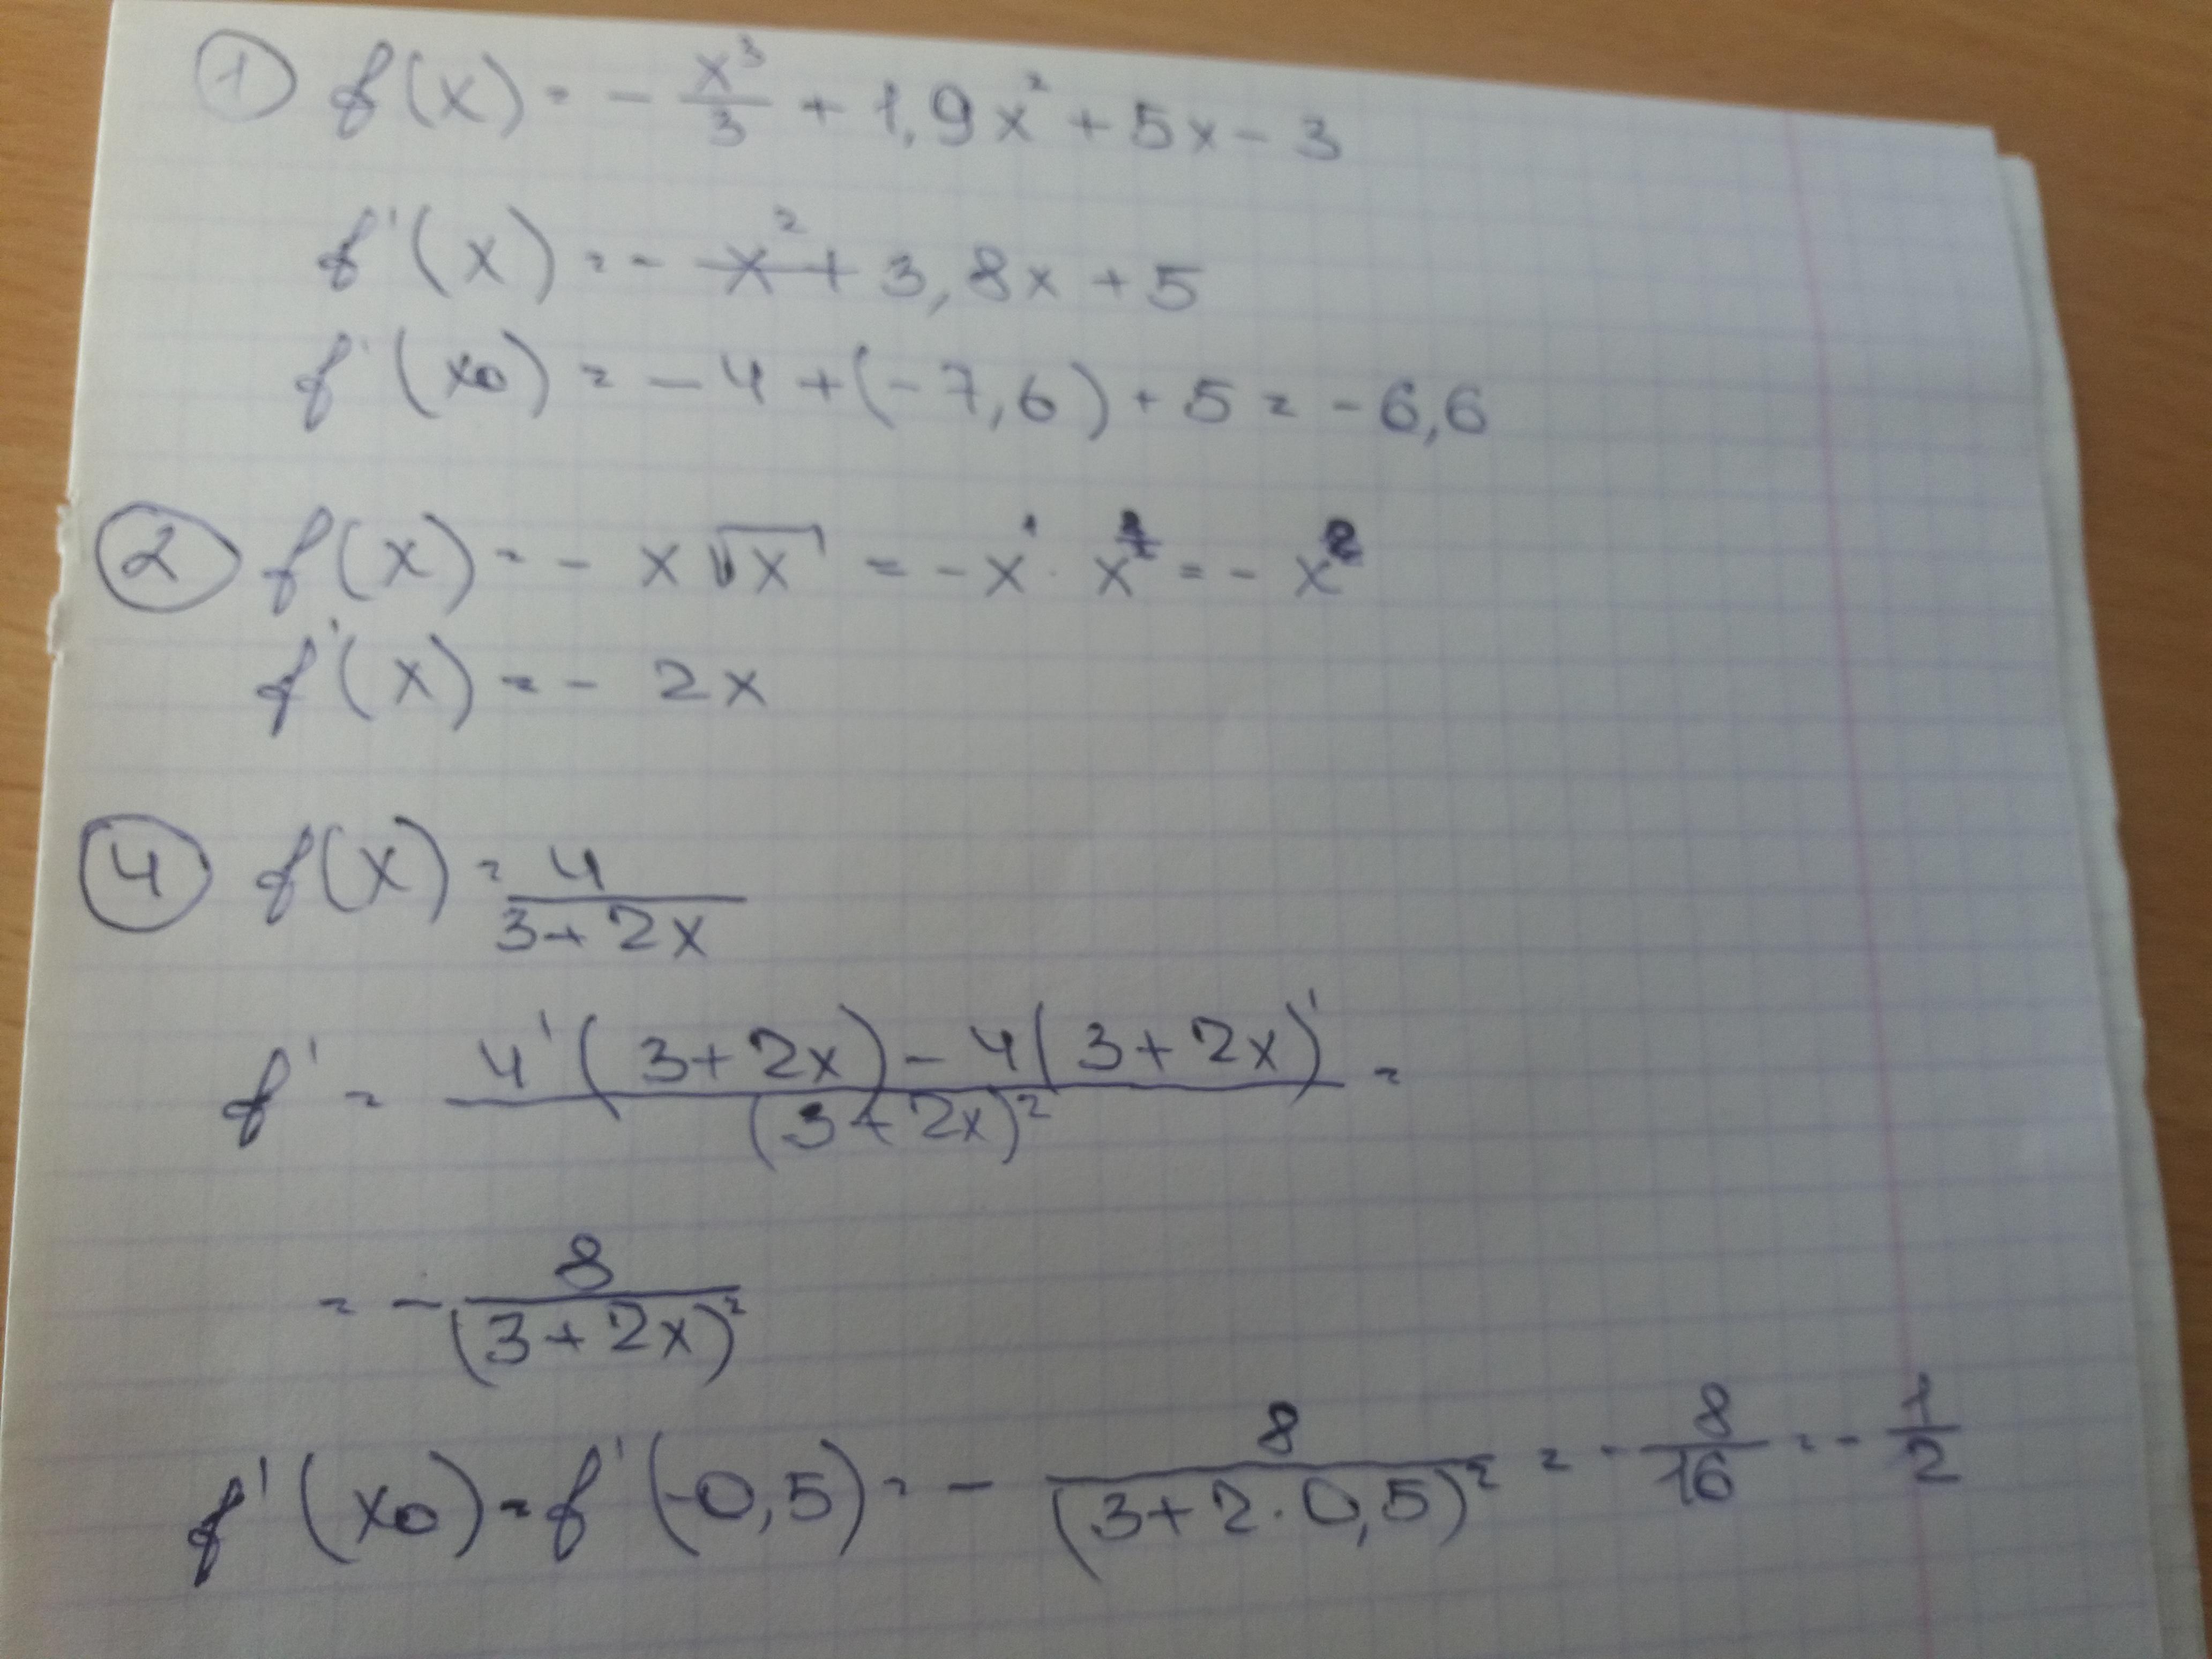 ① f(x) = - x³/3 + 1,9x² + 5x - 3
f'(x) = - x² + 3,8x + 5
f'(x₀) = - 4 + (-7,6) + 5 = - 6,6
② f(x) = - x√x = - x¹ · x = - x
f'(x) = - 2x
④ f(x) = 4/(3+2x)
f' = (4'(3+2x) - 4(3+2x)')/(3+2x)² =
= - 8/(3+2x)²
f'(x₀) = f'(-0,5) = - 8/(3+2·0,5)² = - 8/16 = - 1/2